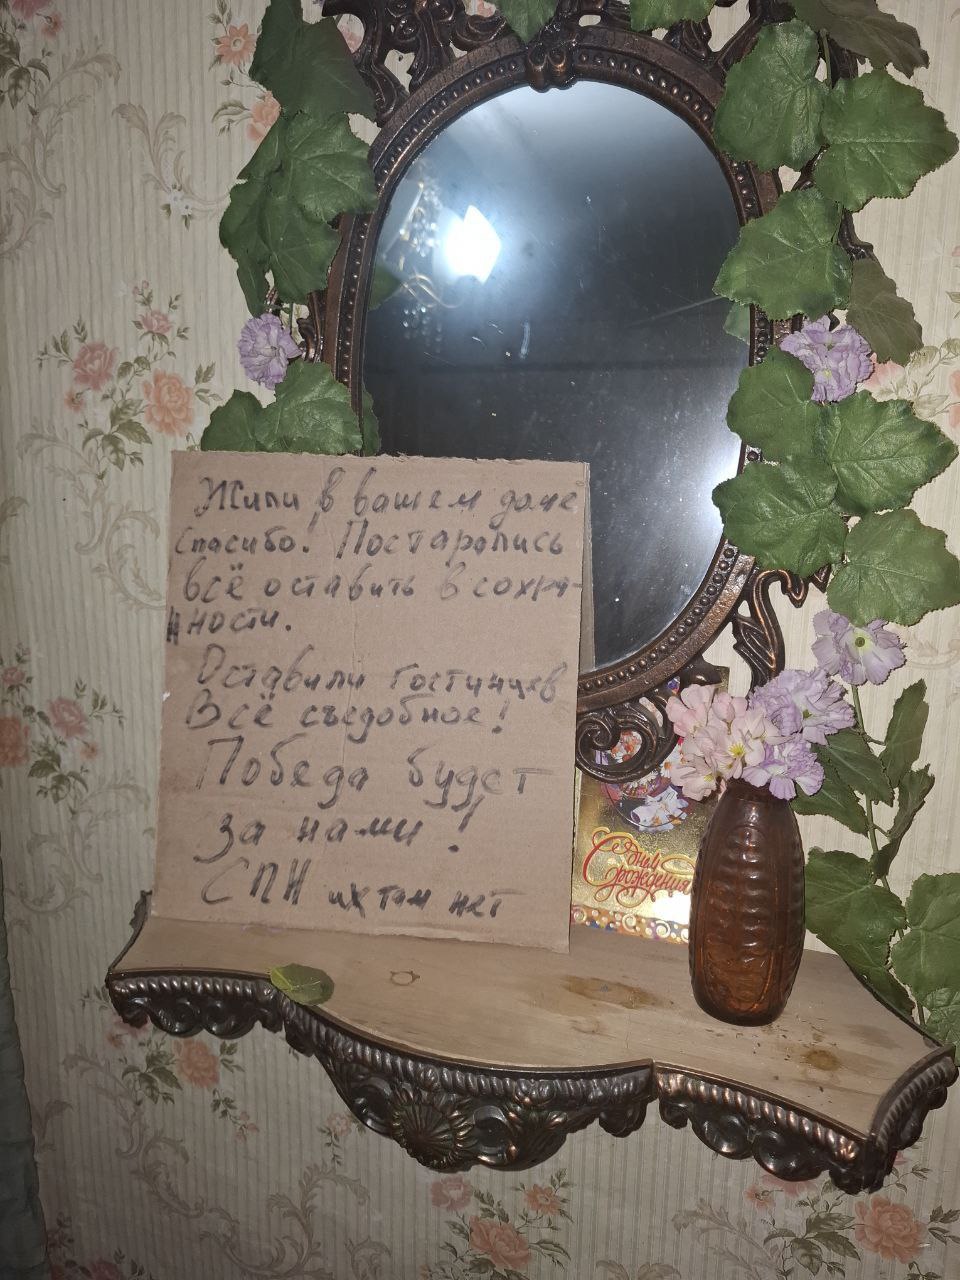 Жили в вашем доме
Спасибо! Постарались
Всё оставить в сохра-
нности.
Оставили гостинцев
Всё съедобное!
Победа будет
за нами!
СПН их там нет
С днём
рождения